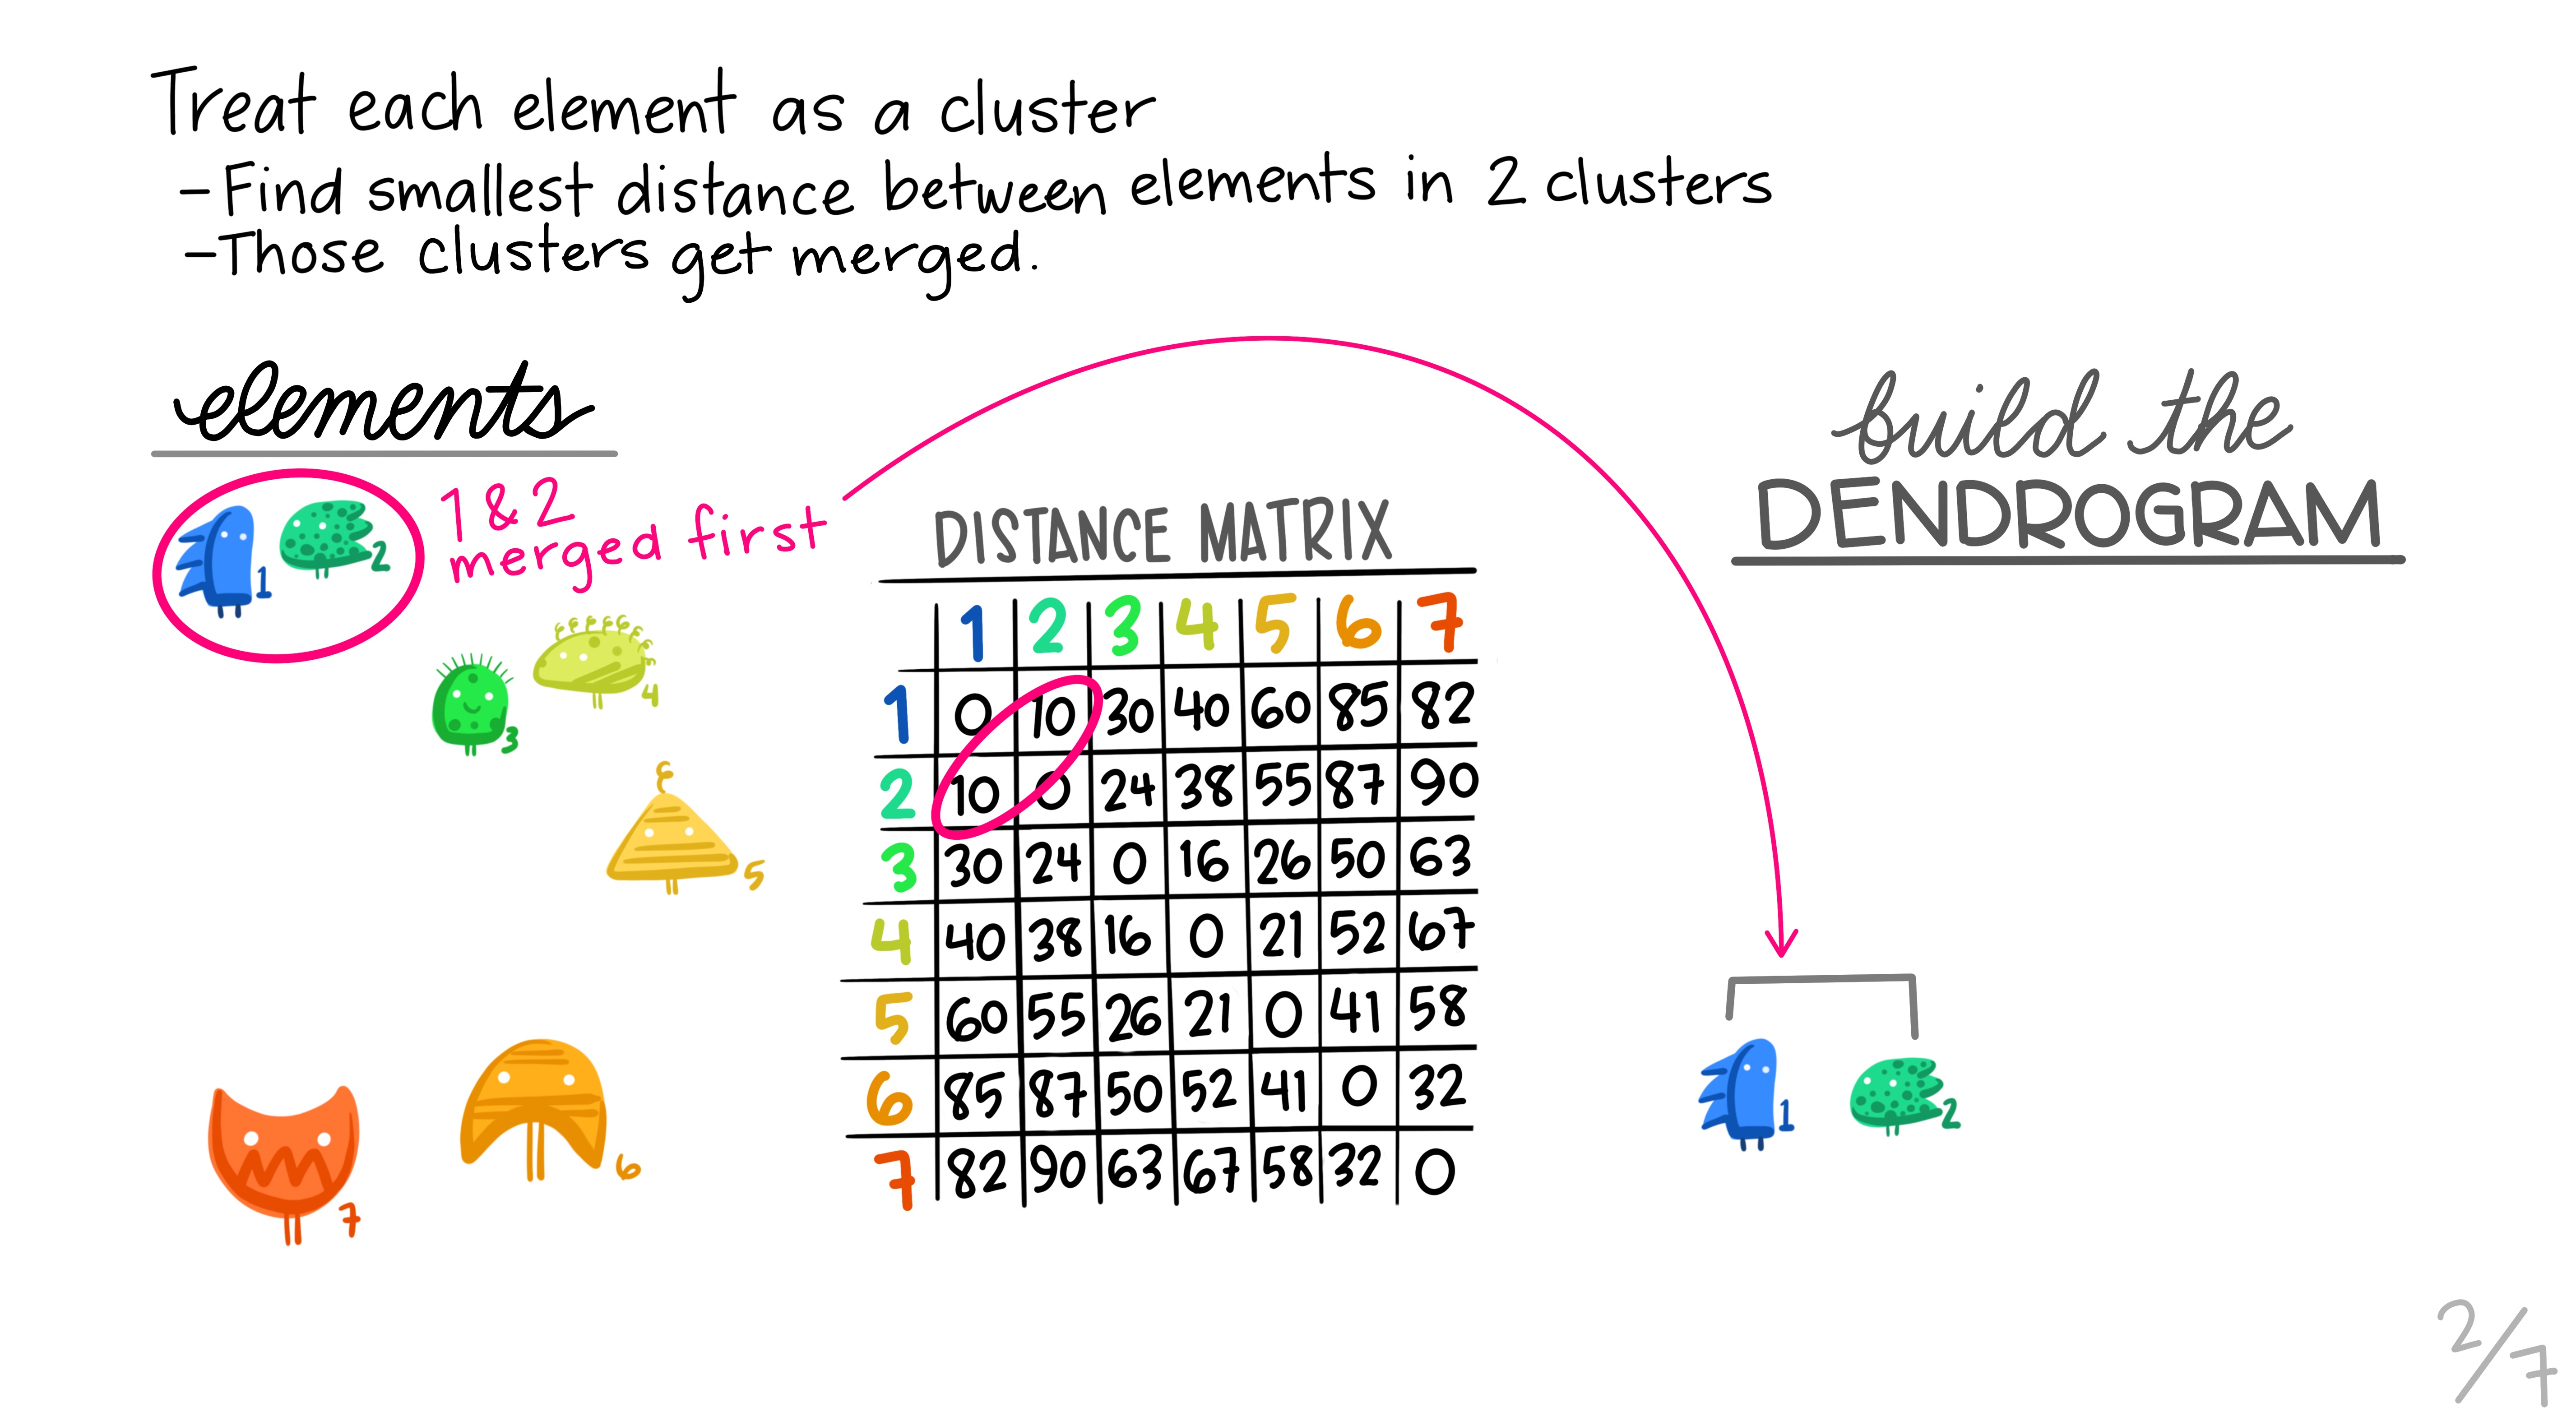 Treat each element as a cluster
- Find smallest distance between elements in 2 clusters
- Those clusters get merged.
elements
1 & 2
merged first
1
2
3
4
5
6
7
DISTANCE MATRIX
1 2 3 4 5 6 7
1 0 10 30 40 60 85 82
2 10 0 24 38 55 87 90
3 30 24 0 16 26 50 63
4 40 38 16 0 21 52 67
5 60 55 26 21 0 41 58
6 85 87 50 52 41 0 32
7 82 90 63 67 58 32 0
build the
DENDROGRAM
1 2
2/7